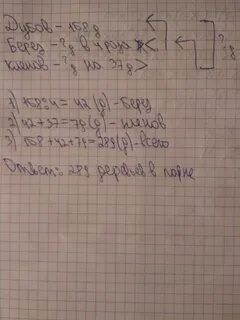 Дубов – 168 д
Берез – ? д в 4 раза <
Кленов – ? д на 37 д >
?
д
1) 168:4 = 42 (д) – берез
2) 42+37=79 (д) – кленов
3) 168+42+79=289(д) – всего
Ответ: 289 деревьев в парке